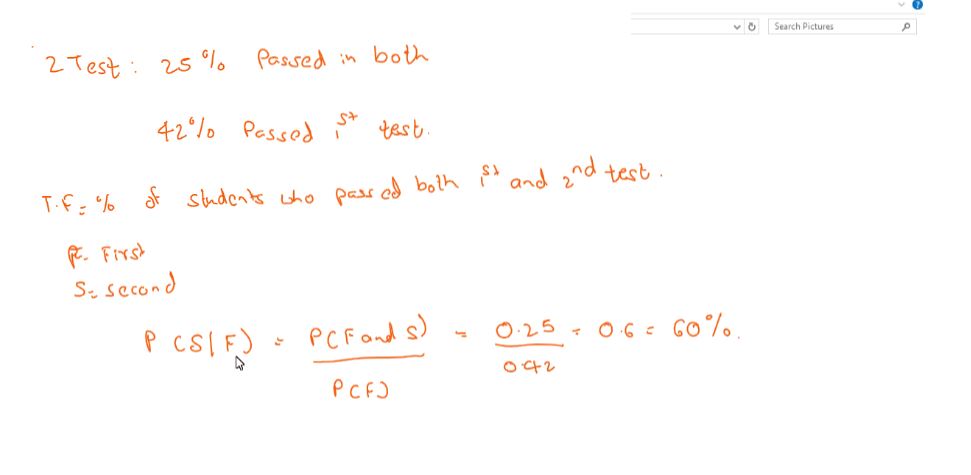 Search Pictures
2 Test : 25% Passed in both
42% Passed 1st test.
T.F = % of students who passed both 1st and 2nd test.
F = First
S = second
P(S|F) = P(F and S) / P(F) = 0.25 / 0.42 = 0.6 = 60%.